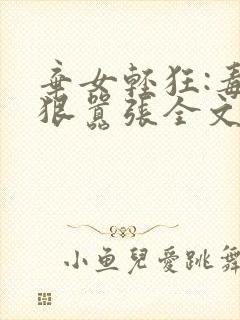 棄女輕狂:毒
狠囂張全文
小魚兒愛跳舞